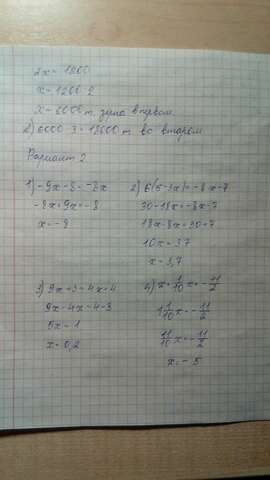 2x = 1200
x = 1200 : 2
x = 6000 т. зерна в первом.
2) 6000 · 3 = 18600 т во втором
Вариант 2
1) -9x - 8 = -8x
-8x + 9x = -8
x = -8
2) 6(5-3x) = -8x-7
30-18x = -8x-7
18x-8x = 30+7
10x = 37
x = 3,7
3) 9x + 3 = 4x + 4
9x - 4x = 4-3
5x = 1
x = 0,2
4) x + 1/10 x = - 11/2
1 1/10 x = - 11/2
11/10 x = - 11/2
x = - 5